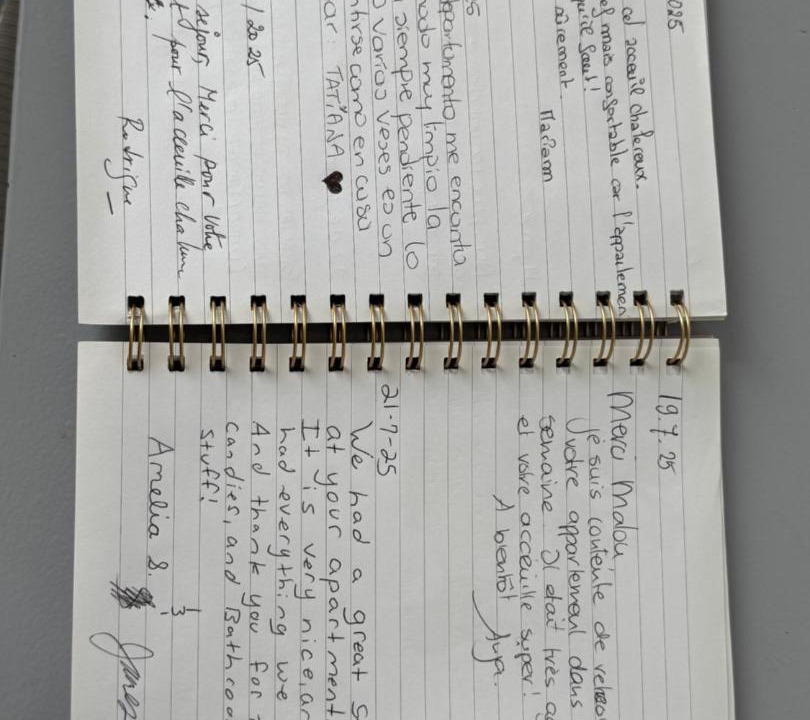 025
cel acceuil chaleureux.
mais confortable car l'appartemen
qu'il faut!
sûrement.
Mariam
partamento, me encanta
odo muy limpio la
siempre pendiente lo
varias veses es un
ntirse como en casa
ar: TATIANA ♥
/2025
sejour, Merci pour votre
pour l'acceuille chaleure
Rodrigue
19.7.25
Merci Malou,
je suis contente de
votre appartement dans
semaine. Il était très
et votre acceuille super!
A bientôt
Aya.
21-7-25
We had a great S
at your apartment
It is very nice, an
had everything we
And thank you for
candies, and Bathroo
stuff!
Amelia S.
James